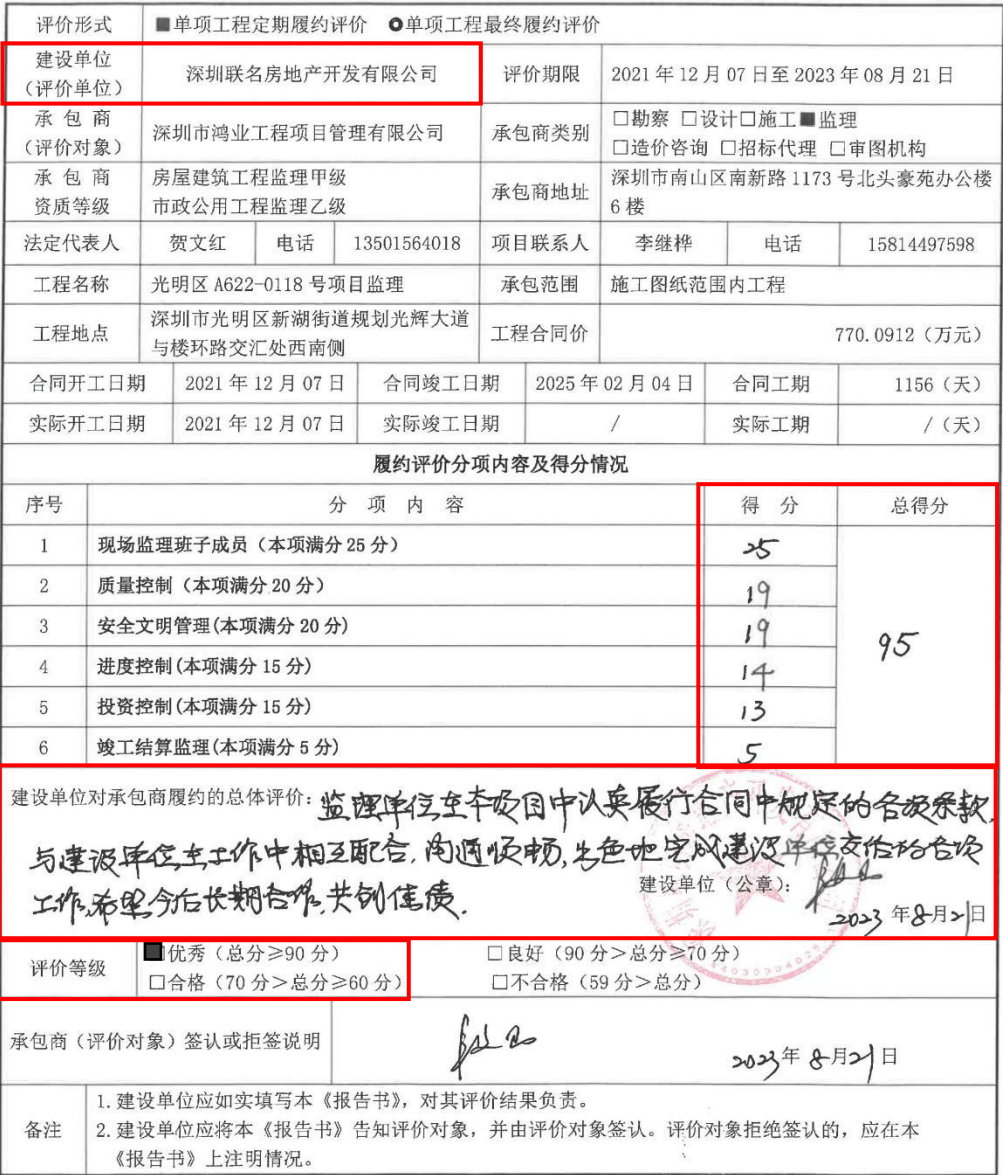 评价形式 ■单项工程定期履约评价 ○单项工程最终履约评价
建设单位（评价单位） 深圳联名房地产开发有限公司 评价期限 2021年12月07日至2023年08月21日
承包商（评价对象） 深圳市鸿业工程项目管理有限公司 承包商类别 □勘察 □设计□施工■监理
□造价咨询 □招标代理 □审图机构
承包商资质等级 房屋建筑工程监理甲级 承包商地址 深圳市南山区南新路1173号北头豪苑办公楼
市政公用工程监理乙级 6楼
法定代表人 贺文红 电话 13501564018 项目联系人 李继桦 电话 15814497598
工程名称 光明区A622-0118号项目监理 承包范围 施工图纸范围内工程
工程地点 深圳市光明区新湖街道规划光辉大道 工程合同价 770.0912（万元）
与楼环路交汇处西南侧
合同开工日期 2021年12月07日 合同竣工日期 2025年02月04日 合同工期 1156（天）
实际开工日期 2021年12月07日 实际竣工日期 / 实际工期 /（天）
履约评价分项内容及得分情况
序号 分项内容 得分 总得分
1 现场监理班子成员（本项满分25分） 25
2 质量控制（本项满分20分） 19
3 安全文明管理(本项满分20分) 19 95
4 进度控制(本项满分15分) 14
5 投资控制(本项满分15分) 13
6 竣工结算监理(本项满分5分) 5
建设单位对承包商履约的总体评价：监理单位在本项目中认真履行合同中规定的各项条款,
与建设单位在工作中相互配合,沟通顺畅,出色地完成建设单位交给的各项
工作,希望今后长期合作,共创佳绩.
建设单位（公章）：
2023年8月21日
评价等级 ■优秀（总分≥90分） □良好（90分＞总分≥70分）
□合格（70分＞总分≥60分） □不合格（59分＞总分）
承包商（评价对象）签认或拒签说明 2023年8月21日
备注 1.建设单位应如实填写本《报告书》，对其评价结果负责。
2.建设单位应将本《报告书》告知评价对象，并由评价对象签认。评价对象拒绝签认的，应在本
《报告书》上注明情况。